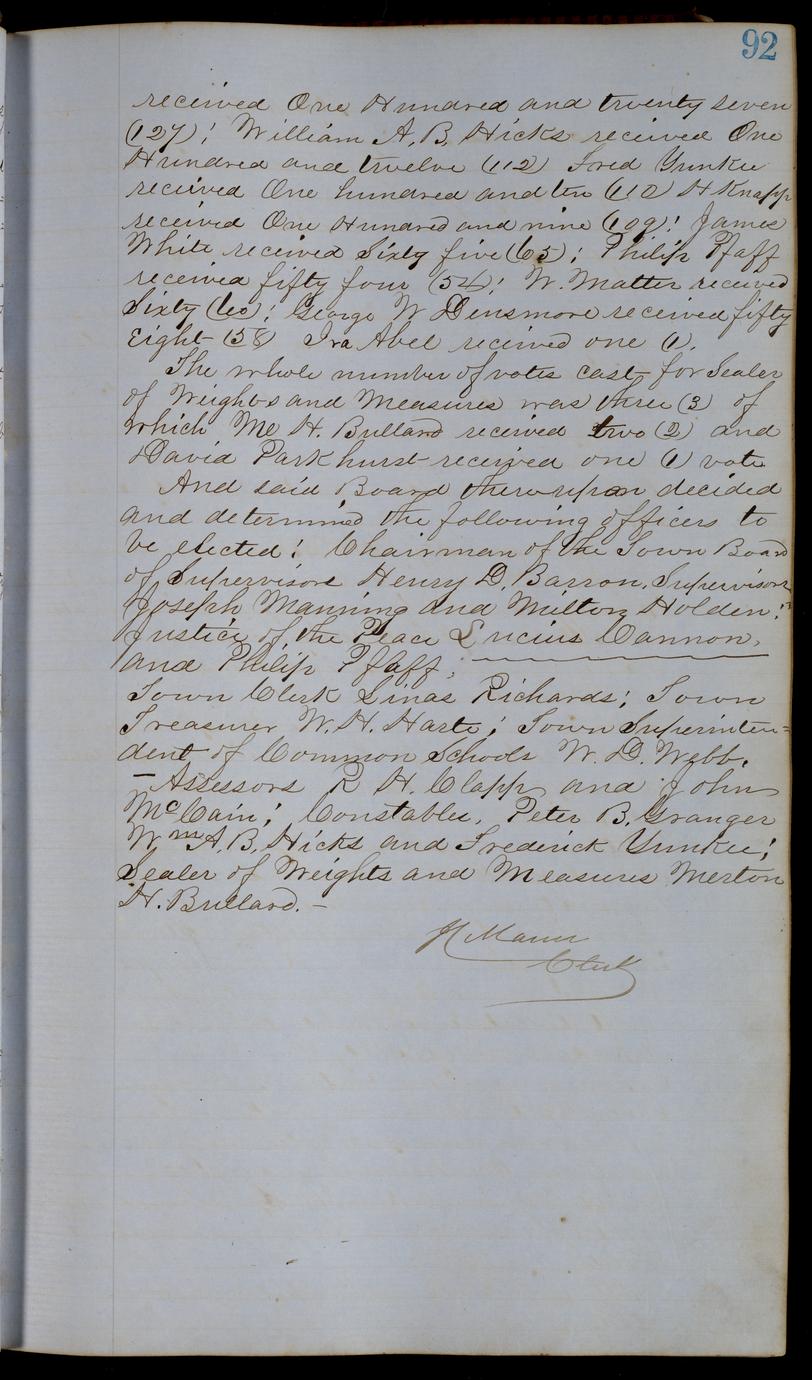 92
received One Hundred and twenty seven
(127); William A. B. Hicks received One
Hundred and twelve (112) Fred Yunkie
received One hundred and ten (110) H Knapp
received One Hundred and nine (109); James
White received Sixty five (65); Philip Pfaff
received fifty four (54); W. Matter received
Sixty (60); George W Densmore received fifty
Eight (58) Ira Abel received one (1).
The whole number of votes cast for Sealer
of Weights and Measures was three (3) of
which Me H. Bullard received two (2) and
David Parkhurst received one (1) vote
And said Board thereupon decided
and determined the following officers to
be elected: Chairman of the Town Board
of Supervisors Henry D. Barron, Supervisors
Joseph Manning and Milton Holden;
Justice of the Peace Lucius Cannon,
and Philip Pfaff;
Town Clerk Linas Richards; Town
Treasurer W. H. Harte; Town Superinten=
dent of Common Schools W. D. Webb.
– Assessors R H. Clapp and John
McCain; Constables, Peter B. Granger
Wm A. B. Hicks and Frederick Yunkie;
Sealer of Weights and Measures Merton
H. Bullard. –
Clerk